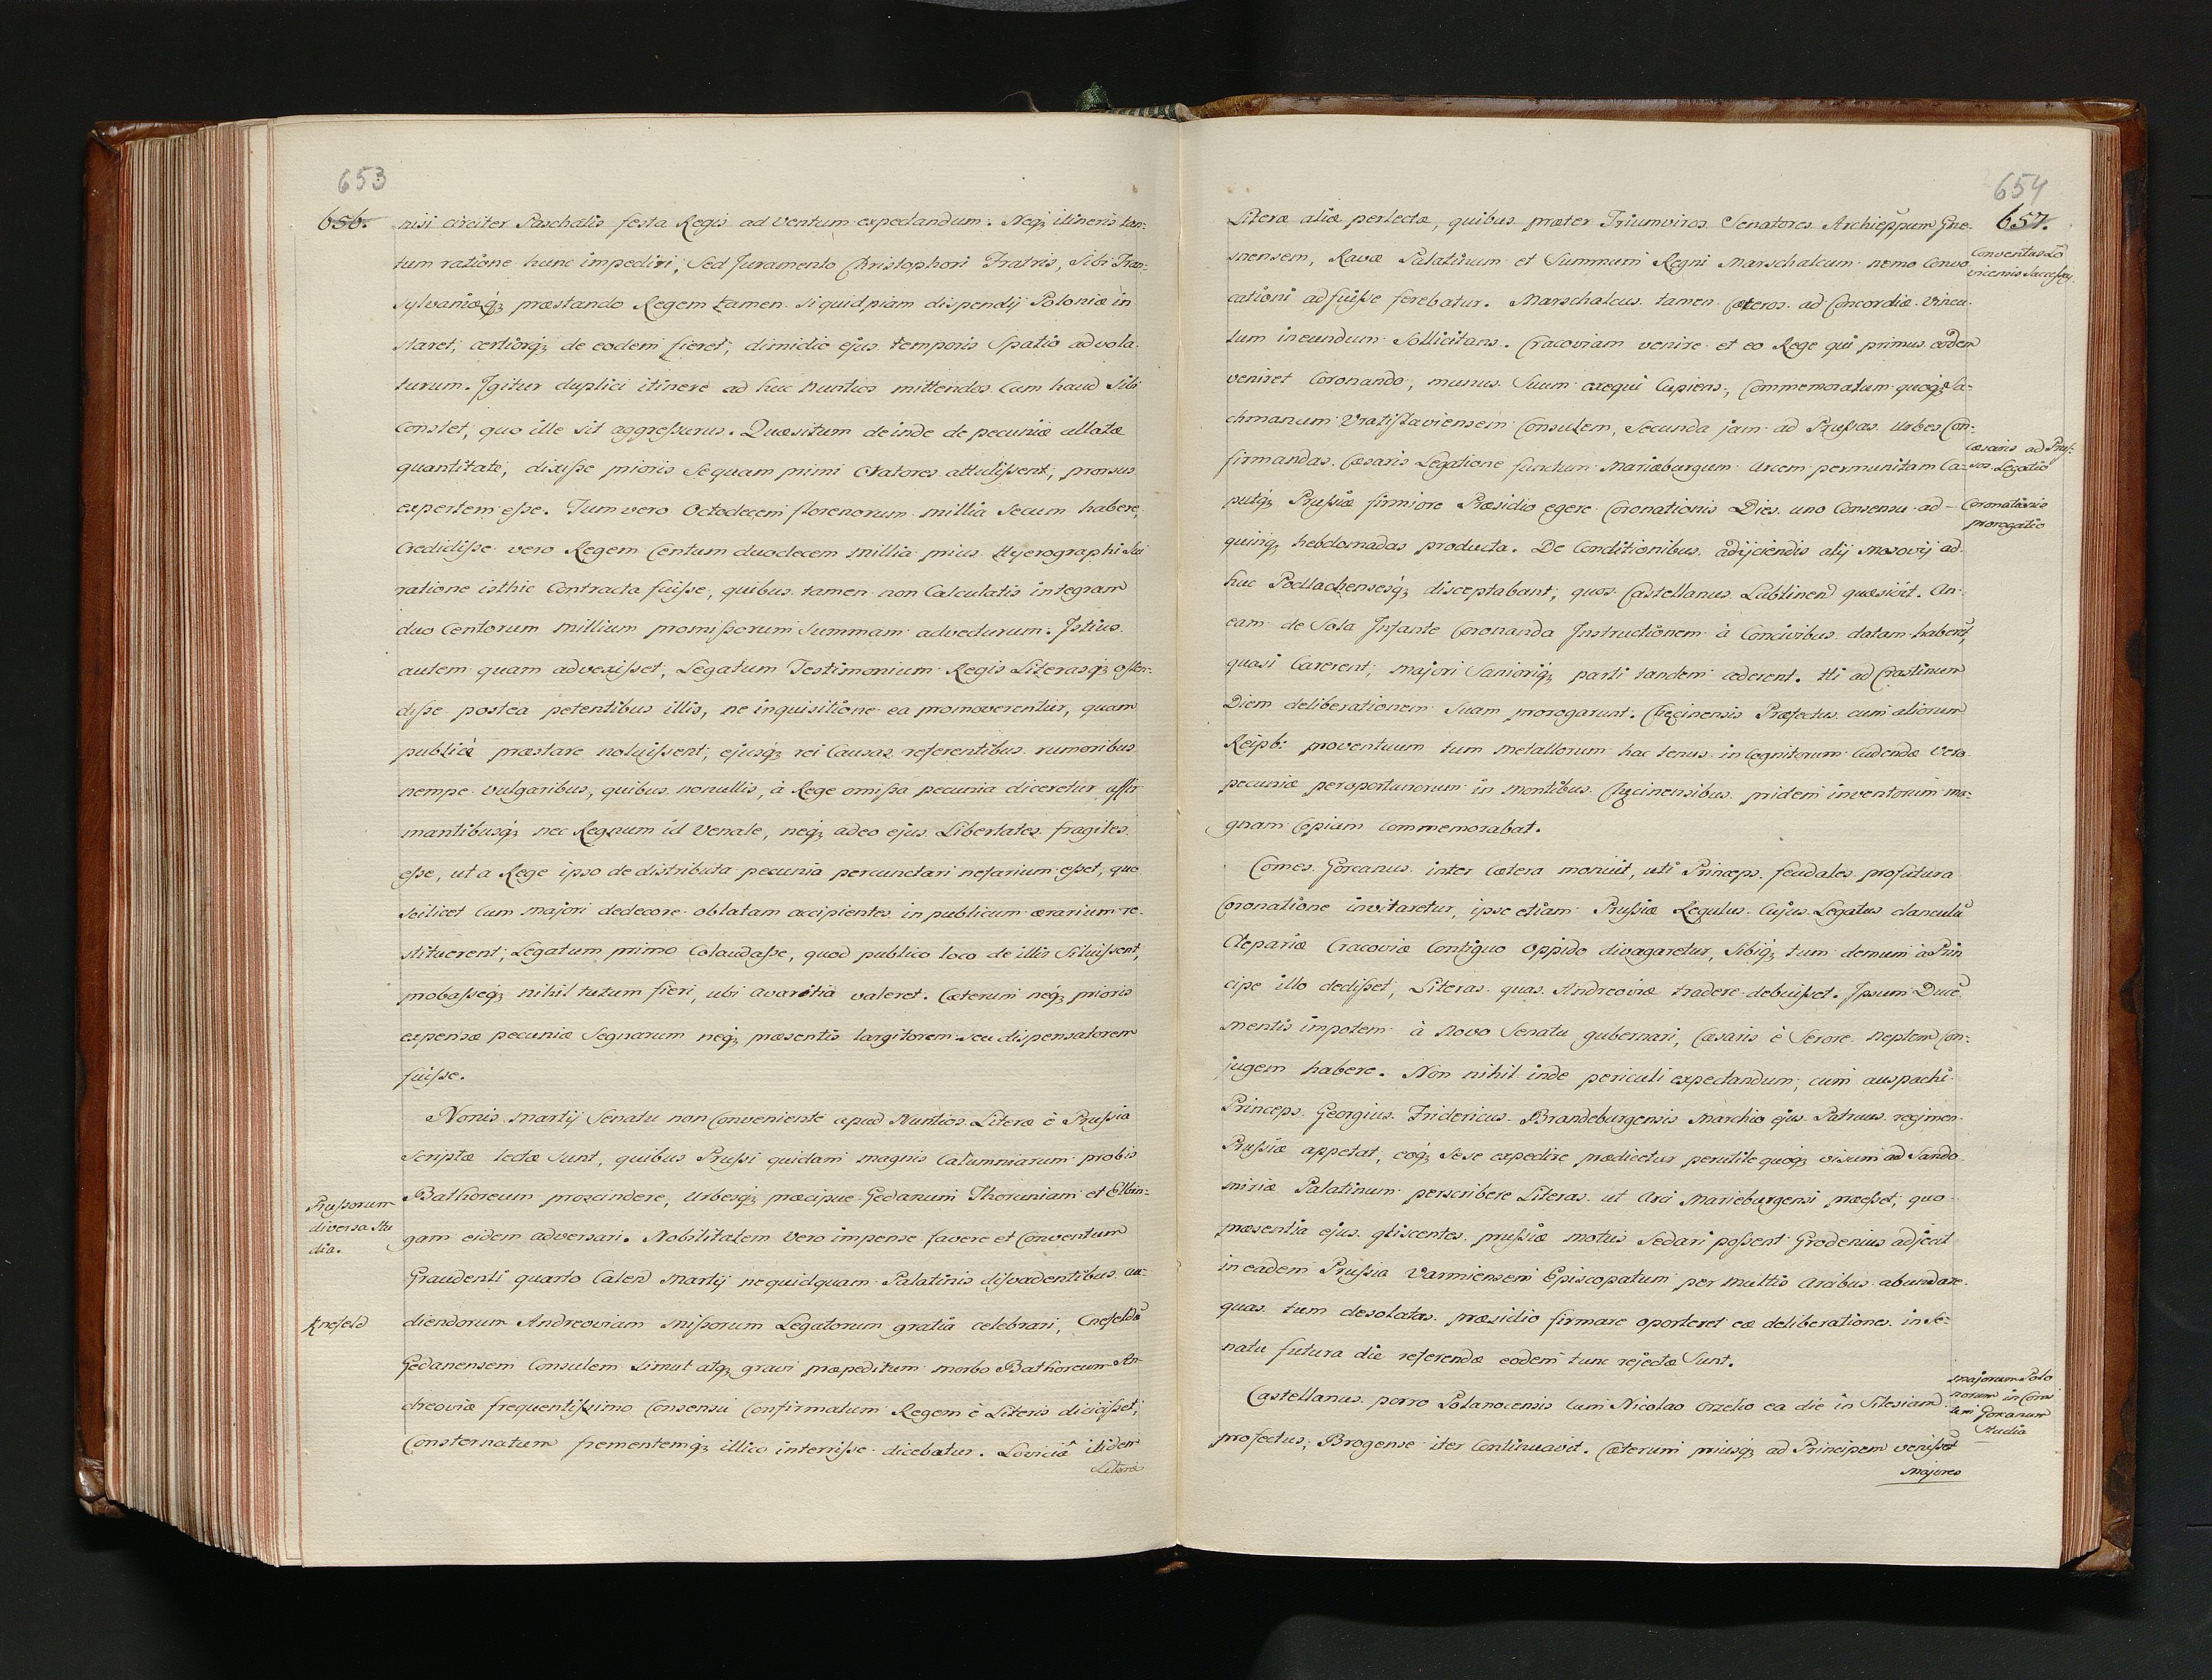 653
656.
nisi circiter Paschalis festa Regis ad ventum expectandum. Neq; itineris tan-
tum ratione hunc impediri, Sed Juramento Christophori Fratris, Sibi Tran-
sylvaniæq; præstando Regem tamen. Si quid piam dispendij Poloniæ in
staret; certiorq; de eodem fieret, dimidio ejus temporis Spatio advola
turum. Igitur duplici itinere ad huc Nuntios mittendos. Cum haud Sibi
Constet, quo ille sit aggressurus. Quæsitum deinde de pecuniæ allatæ
quantitate, dixisse prioris Se quam primi Oratores attulissent, prorsus
expertem esse. Tum vero Octodecem florenorum millia Secum habere,
Credidisse vero Regem Centum duodecem millia prius Hyerographi Sui
ratione isthic Contracta fuisse, quibus tamen non Calculatis integram
duo Centorum Millium promissorum Summam advecturum. Istius
autem quam advexisset, Legatum Testimonium Regis Literasq; osten-
disse postea petentibus illis, ne inquisitione ea promoverentur, quam
publicè præstare noluissent; ejusq; rei Causas referentibus rumoribus
nempe vulgaribus, quibus nonullis, à Rege omissa pecunia diceretur affir
mantibusq; nec Regnum id Venale, neq; adeo ejus Libertates fragiles
esse, ut a Rege ipso de distributa pecunia percunctari nefarium esset, quo
scilicet Cum majori dedecore oblatam accipientes in publicum ærarium re-
stituerent; Legatum primo Colaudasse, quod publico loco de illis Siluissent,
probasseq; nihil tutum fieri, ubi avaritia valeret. Cæterum neq; prioris
expensæ pecuniæ Segnarum neq; præsentis largitorem seu dispensatorem
fuisse.
Nonis Martij Senatu non Conveniente apud Nuntios Literæ è Prussia
Scriptæ lectæ Sunt, quibus Prussi quidam magnis Calumniarum probis
Prussorum
diversa Stu
dia.
Bathoreum proscindere, Urbesq; præcipue Gedanum Thoruniam et Elbin-
gam eidem adversari. Nobilitatem vero impense favere et Conventum
Graudenti quarto Calend Martij nequidquam Palatinis dissvadentibus au-
Knefeld
diendorum Andreoviam missorum Legatorum gratiâ celebrari, Cnefeldũ
Gedanensem Consulem Simul atq; gravi præpeditum morbo Bathoreum An-
dreoviæ frequentissimo Consensu Confirmatum Regem è Literis dicicisset;
Consternatum frementemq; illico interiisse dicebatur. Loviciâ itidem
Literæ
654
657.
Literæ aliæ perlectæ, quibus præter Triumviros Senatores Archieppum Gne-
Conventus Lo
vicensis Successus.
snensem, Ravæ Palatinum et Summum Regni Marschalcum nemo Convo
cationi ad fuisse ferebatur. Marschalcus tamen Cæteros ad Concordiæ vincu-
lum ineundum Sollicitans. Cracoviam venire et eo Rege qui primus eodem
veniret Coronando, munus Suum exequi Cupiens, Commemoratum quoq; La-
chmanum Vratislaviensem Consulem, Secunda jam ad Prussas Urbes Con-
Cæsaris ad Prus-
sos Legatio
firmandas Cæsaris Legatione functum Mariæburgum Arcem permunitam Ca-
putq; Prussiæ firmiore Præsidio egere Coronationis Dies uno Consensu ad
Coronationis
prorogatio
quinq; hebdomadas producta. De Conditionibus adijciendis alij Masovij ad-
huc Podlachensesq; disceptabant, quos Castellanus Lublinend quæsivit. An-
eam de Sola Infante Coronanda Instructionem à Concivibus datam haberet,
quasi Carerent, majori Sanioriq; parti tandem cederent. Hi ad Crastinum
Diem deliberationem Suam prorogarunt. Chęcinensis Præfectus cum aliorum
Reipb: proventuum tum metallorum hac tenus in Cognitorum Cudendæ vero
pecuniæ peroportunorum in Montibus Chęcinensibus pridem inventorum ma-
gnam Copiam Commemorabat.
Comes Gorcanus inter Cætera monuit, uti Princeps feudales pro futura
Coronatione invitaretur, ipse etiam Prussiæ Regulus. Cujus Legatus clanculũ
Clepariæ Cracoviæ Contiguo Oppido divagaretur, Sibiq; tum demum à Prin
cipe illo dedisset, Literas quas Andreoviæ tradere debuisset. Ipsum Ducẽ
mentis impotem à Novo Senatu gubernari, Cæsaris è Serore Neptem Con-
jugem habere. Non nihil inde periculi expectandum, cum auspachi
Princeps Georgius Fridericus Brandeburgensis Marchio ejus Patruus regimen
Prussiæ appetat, eoq; Sese expedire prædicetur perutile quoq; visum ad Sando
miriæ Palatinum perscribere Literas ut Arci Marieburgensi præesset, quo
præsentia ejus gliscentes prussiæ motus Sedari possent Grodenius adjecit
in eadem Prussia Varmiensem Episcopatum per multis Arcibus abundare
quas tum desolatas præsidio firmare oporteret eæ deliberationes in Se-
natu futura die referendæ eodem tunc rejectæ Sunt.
Majorum Polo
norum in Comi
tem Gorcanum
Studia
Castellanus porro Polanocensis Cum Nicolao Orzelio ea die in Silesiam
profectus, Brogense iter Continuavit. Cæterum priusq; ad Principem venisset
Majores